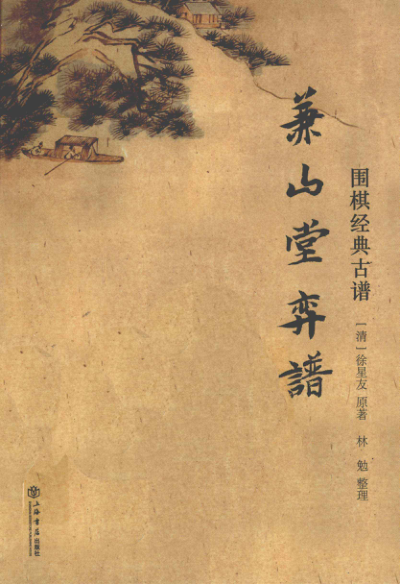 兼山堂弈譜
围棋经典古谱
［清］徐星友 原著 林 勉 整理
上海书店出版社